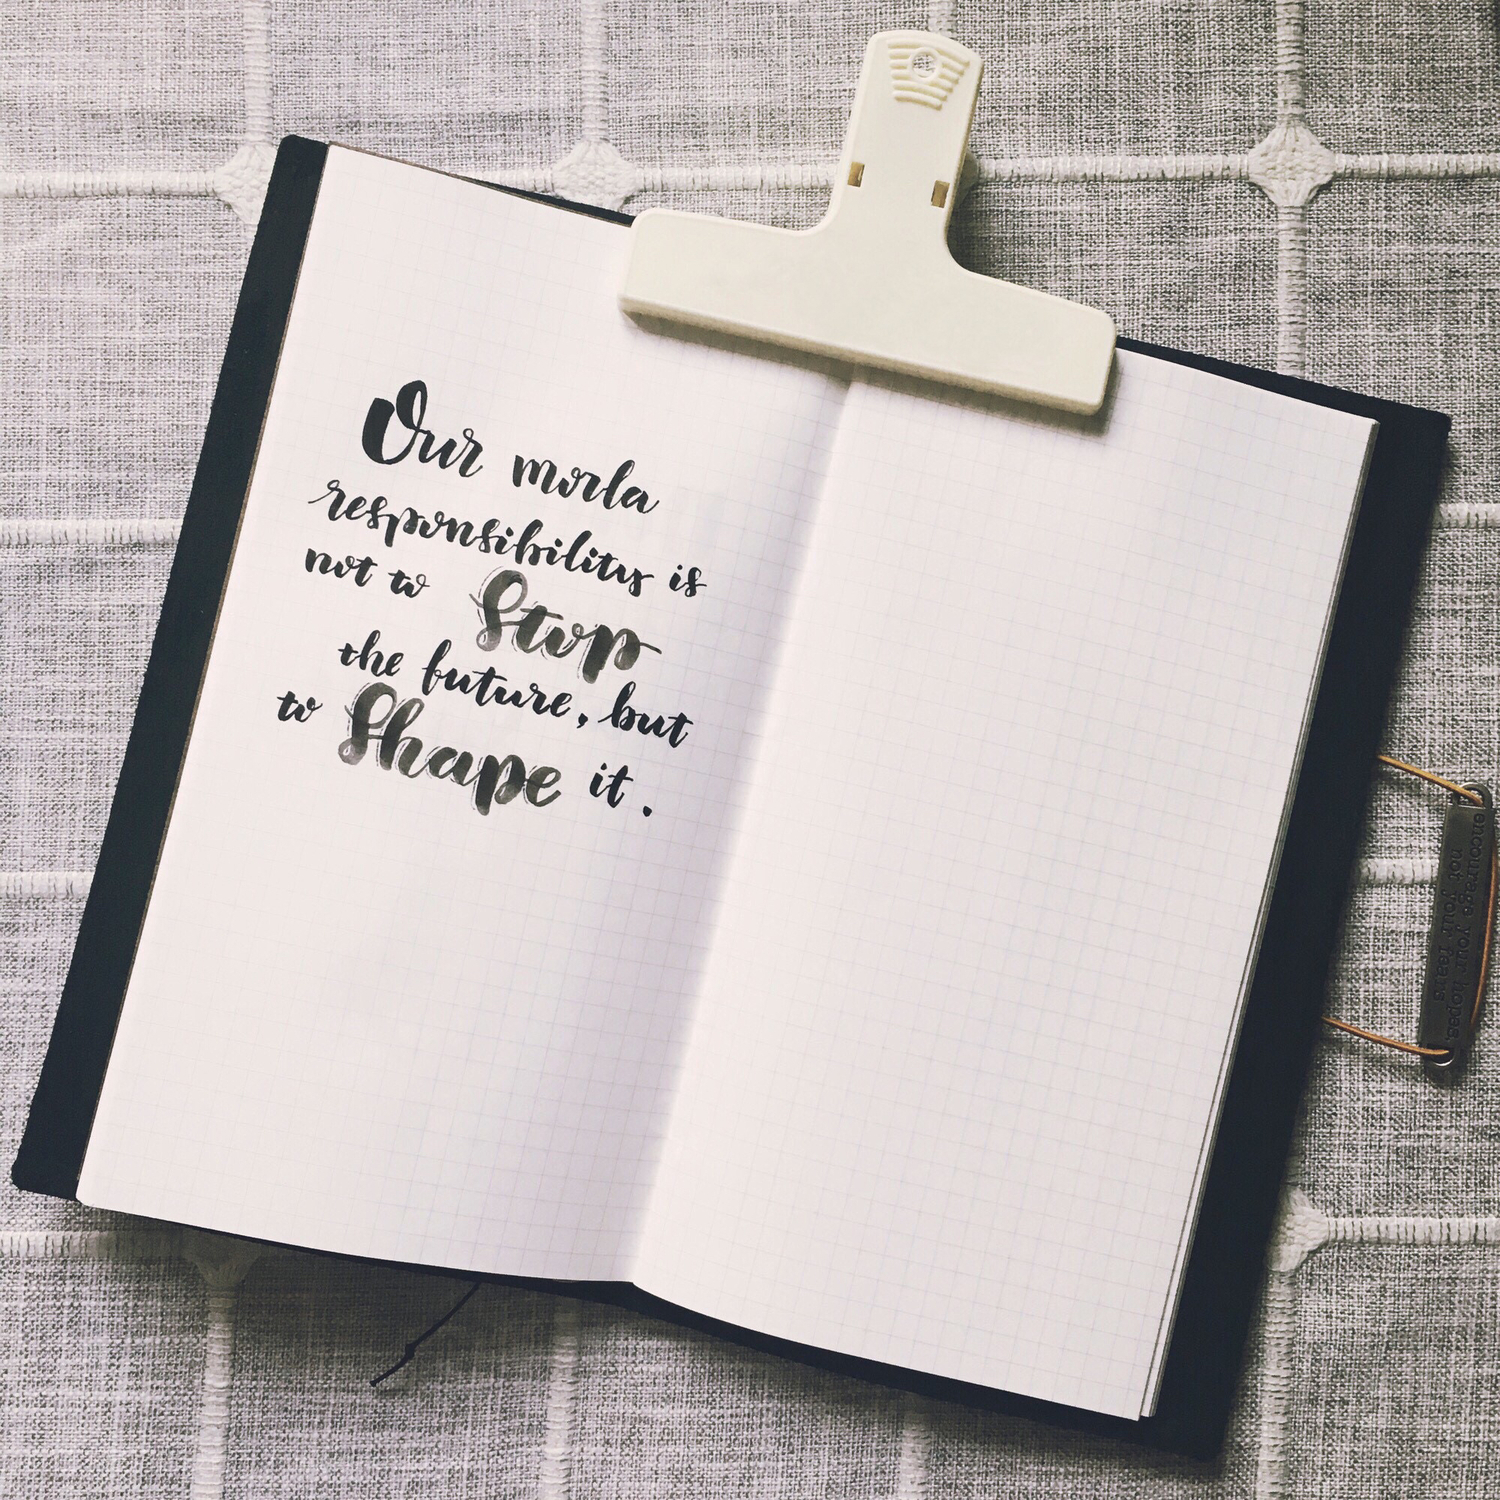 Our morla
responsibility is
not to Stop
the future, but
to Shape it.
encourage your hopes,
not your fears